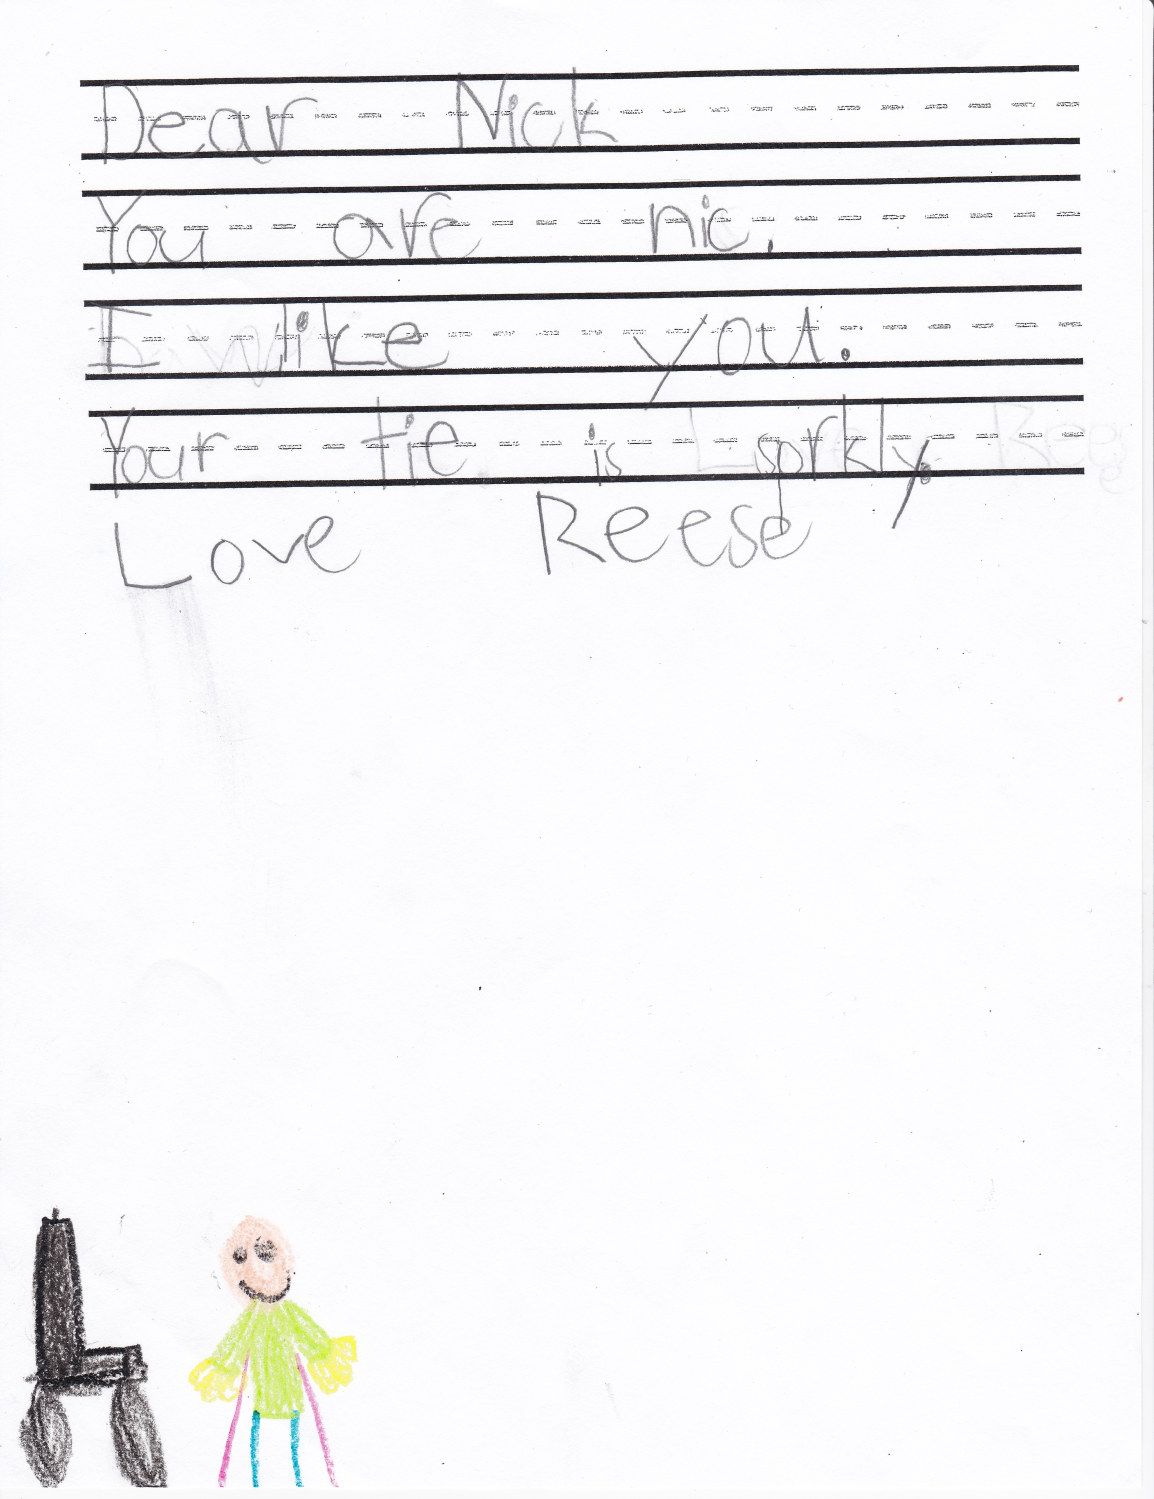 Dear Nick
You are nic.
I like you.
Your tie is sprkly.
Love Reese